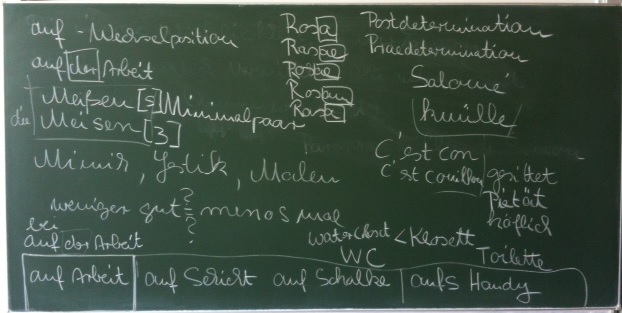 auf - Wechselposition
auf der Arbeit
die
Meißen [s] Minimalpaar
Meisen [z]
Mimik, Gestik, Malen
weniger gut ? = ? menos mal
bei
auf der Arbeit
Rosa
Rosae
Rosae
Rosam
Rosa
Postdetermination
Praedetermination
Salomé
C'est con
C'est couillon
gesittet
Pietät
höflich
watercloset < Klosett
WC
Toilette
auf Arbeit
auf Schicht
auf Schalke
aufs Handy